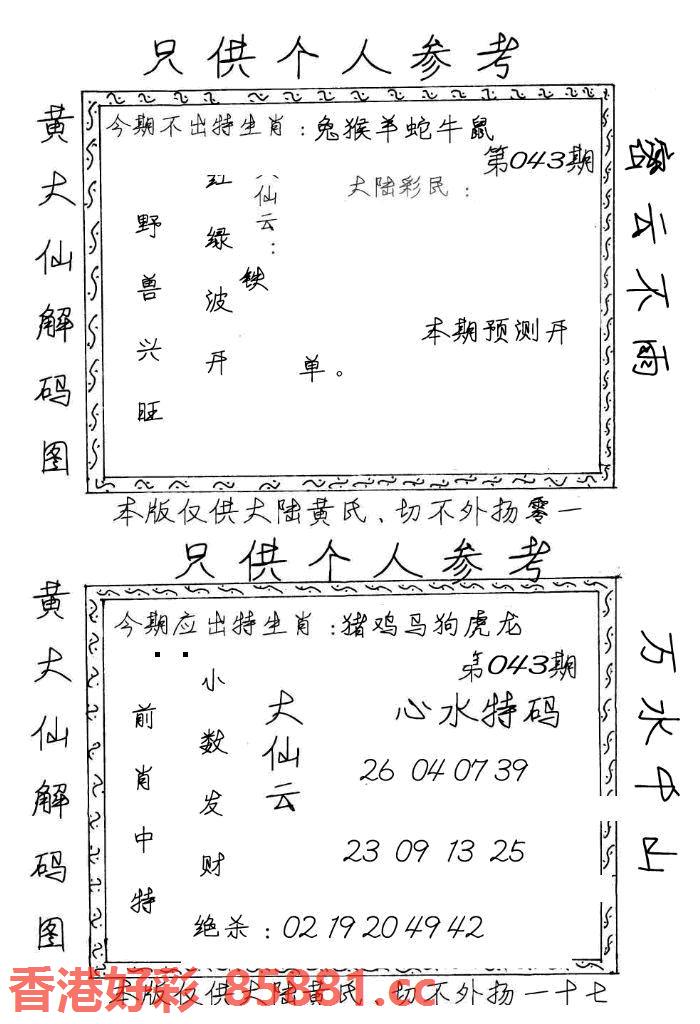 只供个人参考
黄大仙解码图
今期不出特生肖：兔猴羊蛇牛鼠
第043期
大陆彩民：
仙云：铁
红绿波开
野兽兴旺
本期预测开
单。
密云不雨
本版仅供大陆黄氏、切不外扬零一
只供个人参考
黄大仙解码图
今期应出特生肖：猪鸡马狗虎龙
第043期
心水特码
大仙云
小数发财
前肖中特
26 04 07 39
23 09 13 25
绝杀：02 19 20 49 42
万水中山
本版仅供大陆黄氏、切不外扬一十七
香港好彩 85881.cc